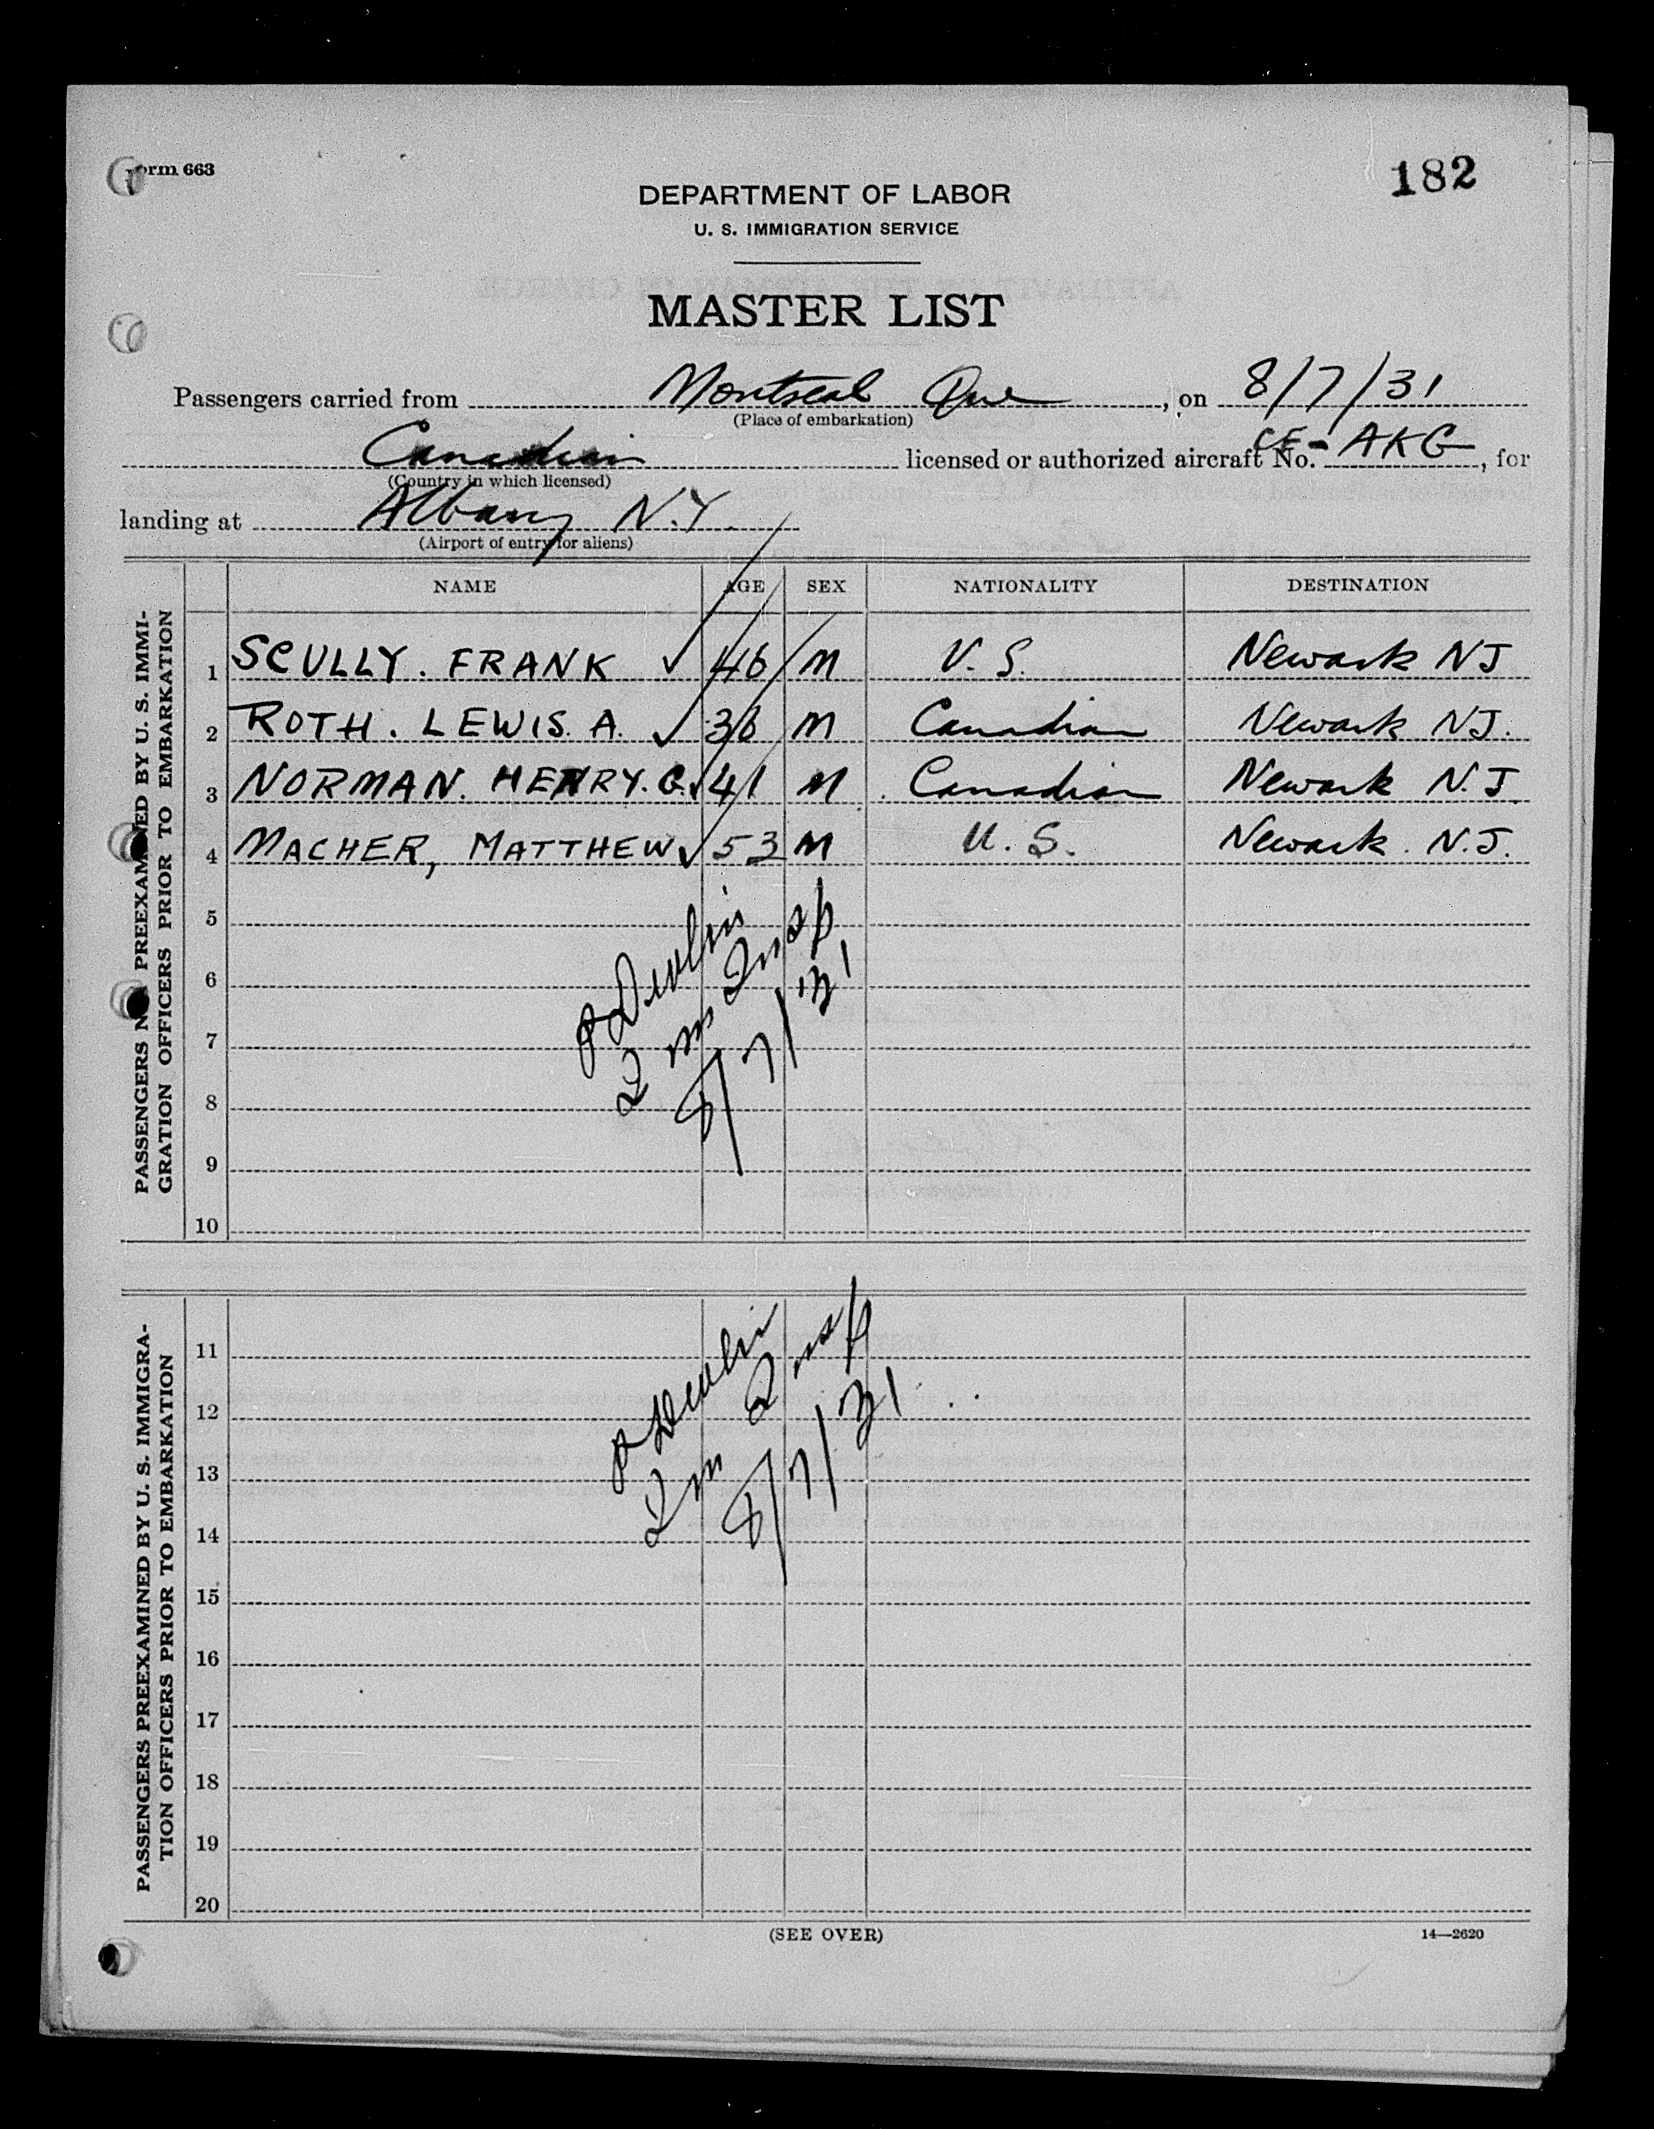 Form 663
182
DEPARTMENT OF LABOR
U. S. IMMIGRATION SERVICE
MASTER LIST
Passengers carried from Montreal Que, on 8/7/31
(Place of embarkation)
Canadian licensed or authorized aircraft No. CF-AKG, for
(Country in which licensed)
landing at Albany N.Y.
(Airport of entry for aliens)
NAME AGE SEX NATIONALITY DESTINATION
PASSENGERS NOT PREEXAMINED BY U. S. IMMI-
GRATION OFFICERS PRIOR TO EMBARKATION
1 SCULLY. FRANK ✓ 46 M U. S. Newark NJ
2 ROTH. LEWIS. A. ✓ 36 M Canadian Newark NJ.
3 NORMAN. HENRY. G. ✓ 41 M Canadian Newark N.J.
4 MACHER, MATTHEW ✓ 53 M U. S. Newark. N.J.
5
6
7
8
9
10
Devlin
Imm Insp
8/7/31
PASSENGERS PREEXAMINED BY U. S. IMMIGRA-
TION OFFICERS PRIOR TO EMBARKATION
11
12
13
14
15
16
17
18
19
20
Devlin
Imm Insp
8/7/31
(SEE OVER)
14—2620